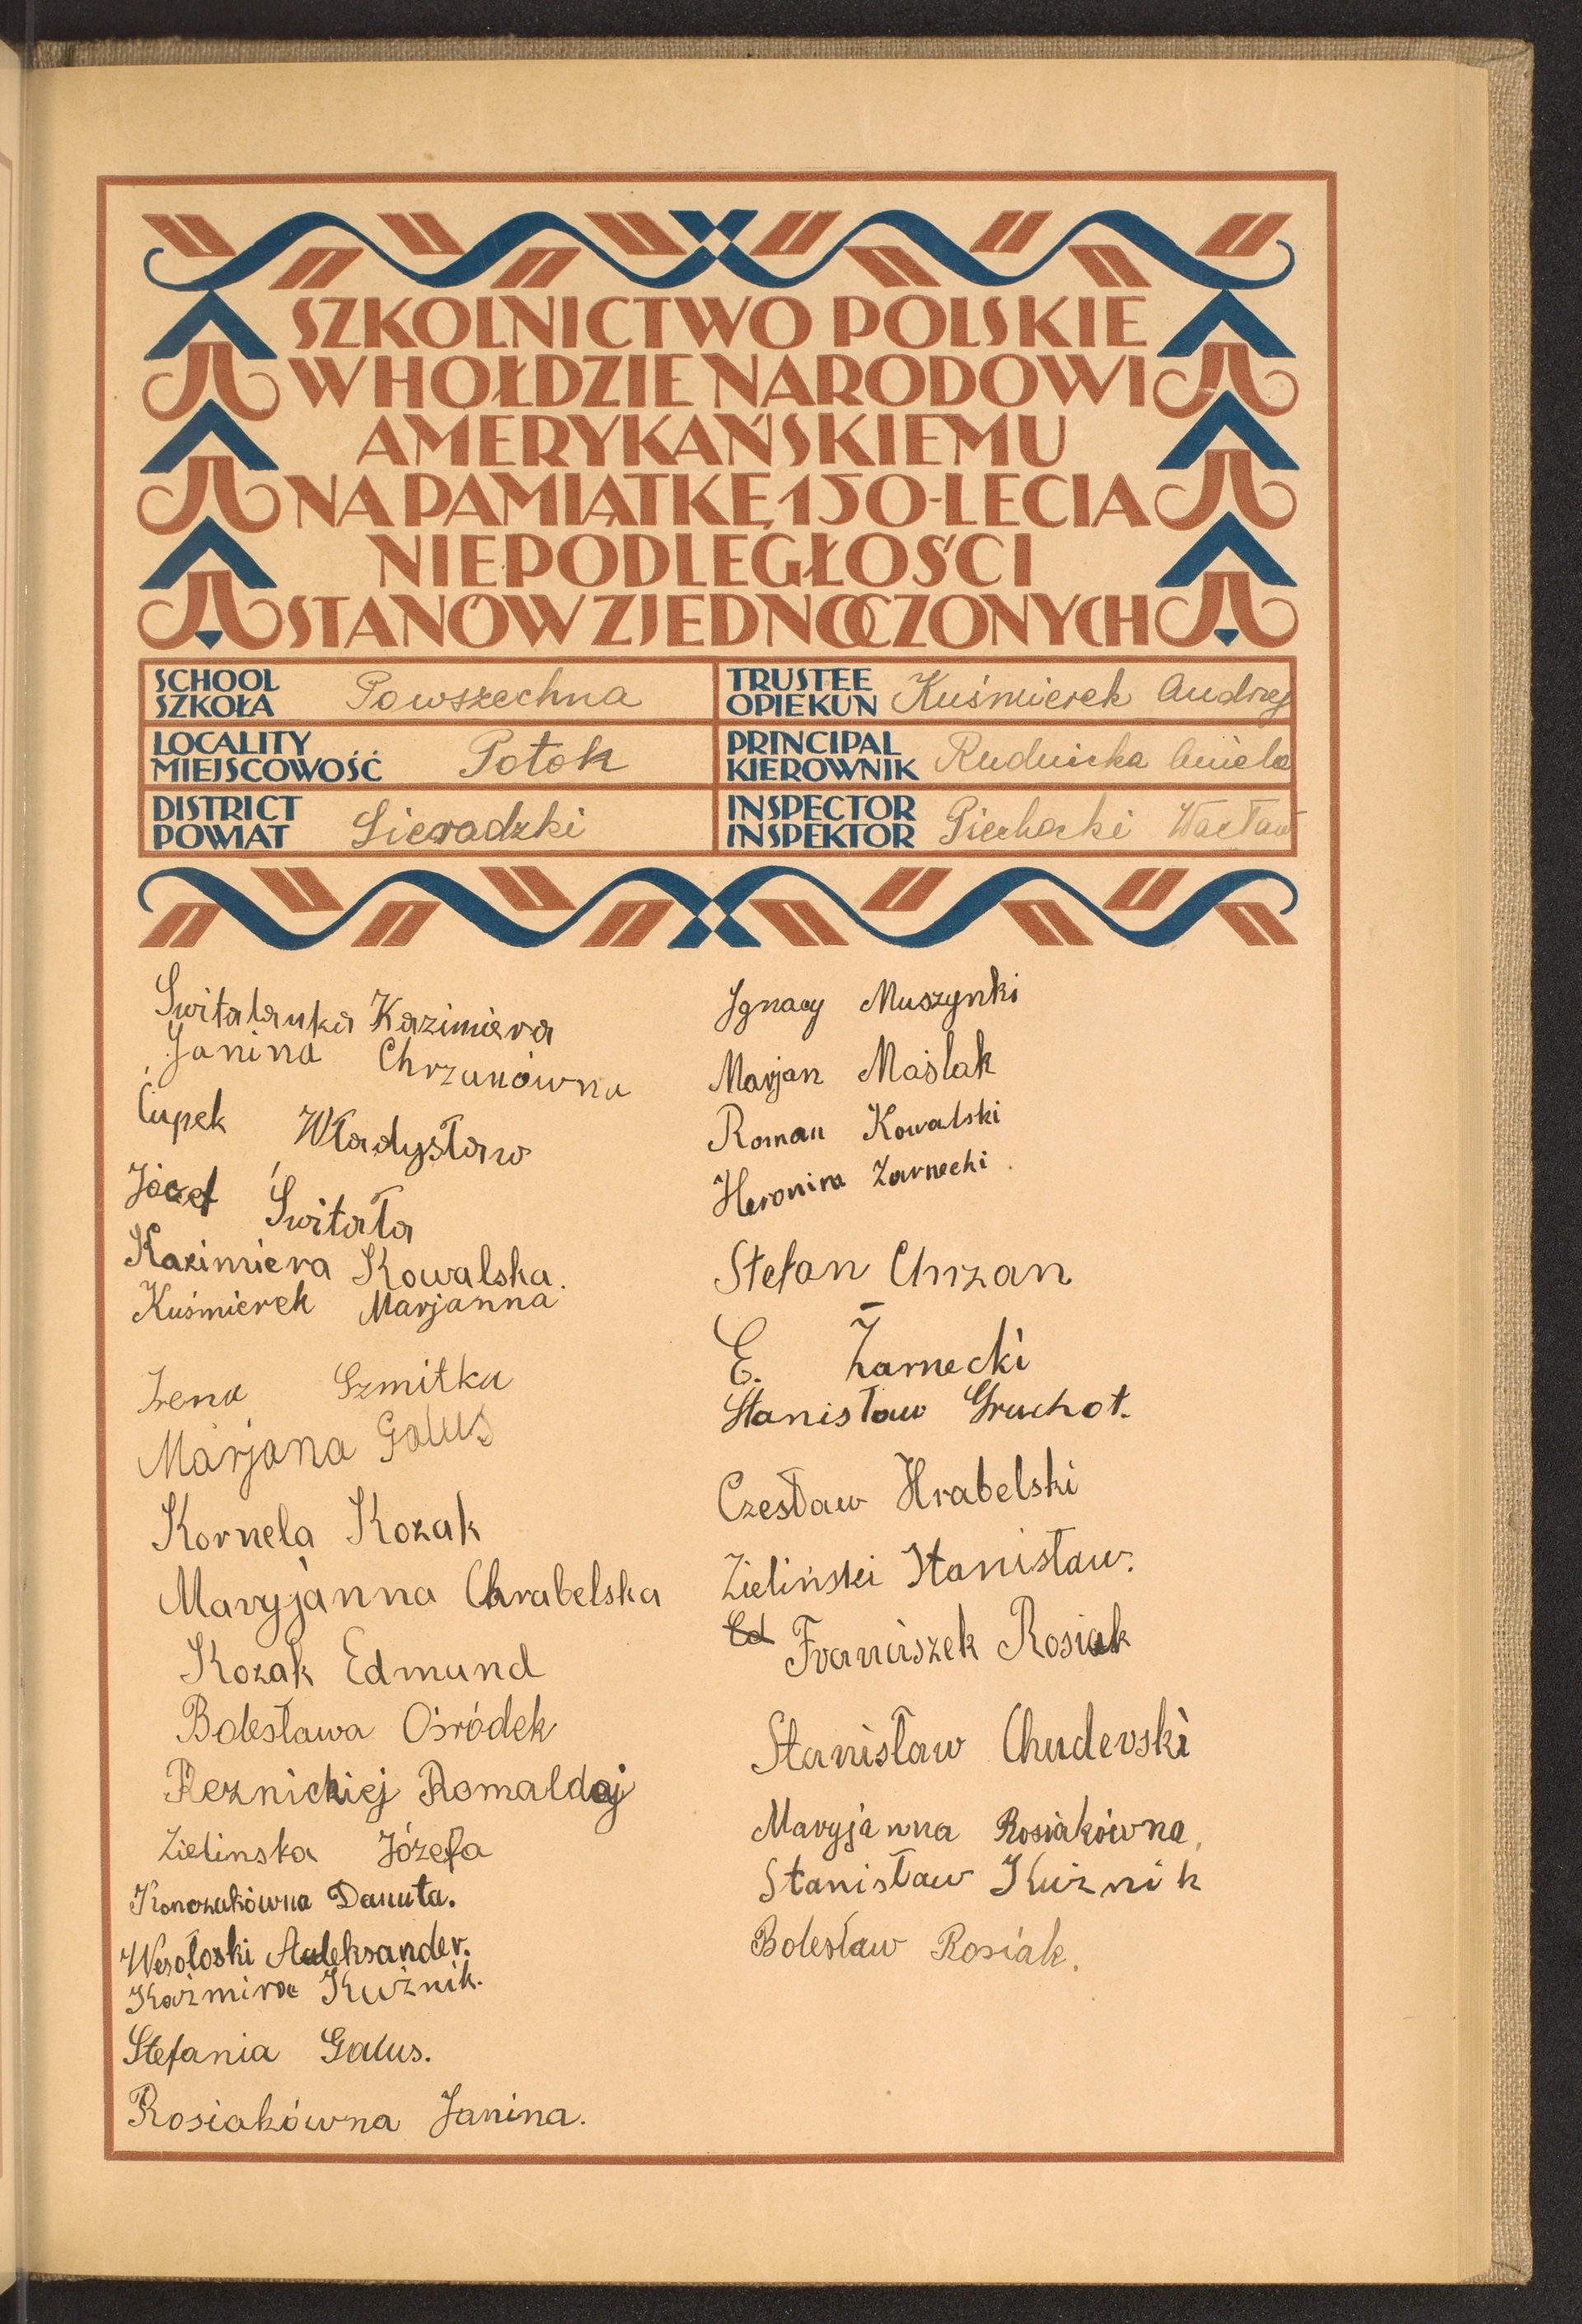 SZKOLNICTWO POLSKIE
W HOŁDZIE NARODOWI
AMERYKAŃSKIEMU
NA PAMIĄTKĘ 150-LECIA
NIEPODLEGŁOŚCI
STANÓW ZJEDNOCZONYCH
SCHOOL
SZKOŁA Powszechna
TRUSTEE
OPIEKUN Kuśmierek Andrzej
LOCALITY
MIEJSCOWOŚĆ Potok
PRINCIPAL
KIEROWNIK Rudnicka Aniela
DISTRICT
POWIAT Sieradzki
INSPECTOR
INSPEKTOR Piechocki Wacław
Switalanka Kazimiera
Janina Chrzanówna
Ćupek Władysław
Józef Świtała
Kazimiera Kowalska.
Kuśmierek Marjanna
Irena Szmitka
Marjana Galus
Kornela Kozak
Maryjanna Chrabelska
Kozak Edmund
Bolesława Ośródek
Reznickiej Romaldaj
Zielinska Józefa
Konozakówna Danuta.
Wesołoski Aaleksander.
Kaźmira Kuźnik.
Stefania Galus.
Rosiakówna Janina.
Ignacy Muszynki
Marjan Maślak
Roman Kowalski
Heronim Zarnecki.
Stefan Chrzan
E. Żarnecki
Stanisław Gruchot.
Czesław Hrabelski
Zieliński Stanisław.
Ed Franciszek Rosiak
Stanisław Chudevski
Maryjanna Rosiakówna,
Stanisław Kuźnik
Bolesław Rosiak.